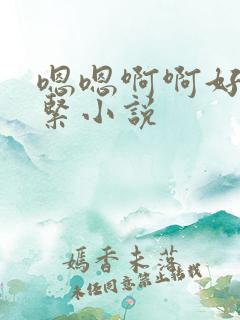 嗯嗯啊啊好
紧小说
嫣香未落
未经同意禁止转载